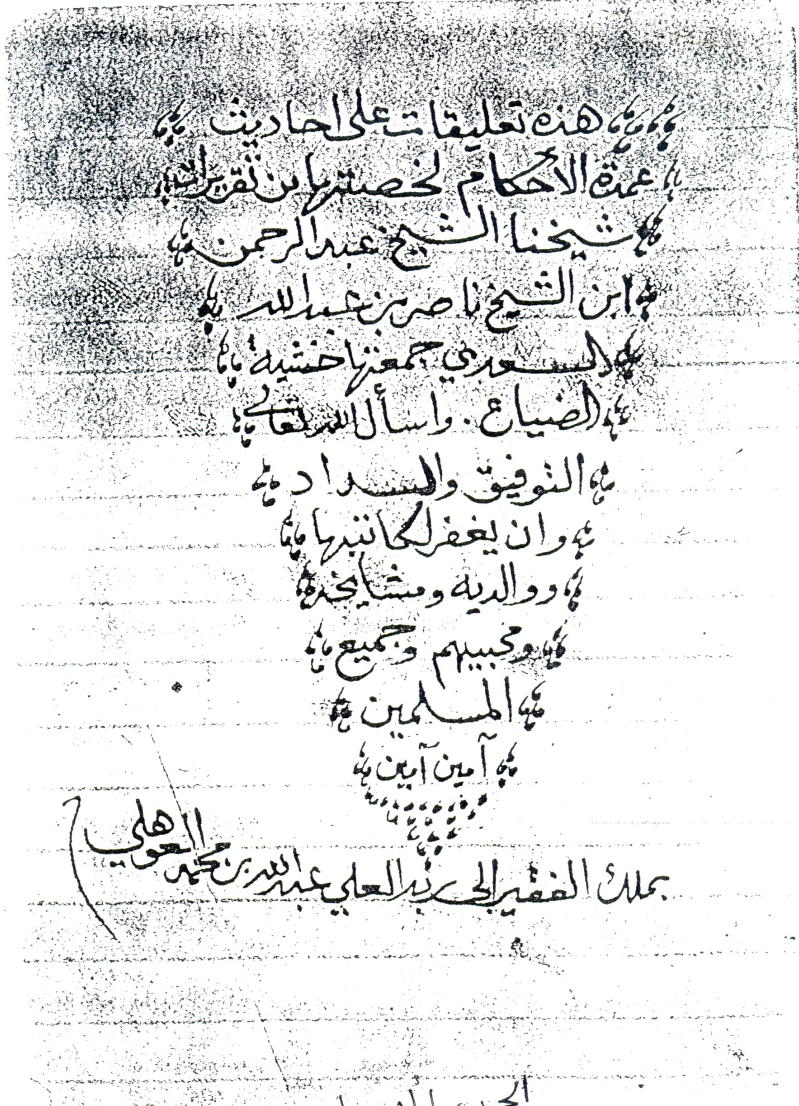 هذه تعليقات على احاديث
عمدة الأحكام لخصتها من تقريرات
شيخنا الشيخ عبد الرحمن
ابن الشيخ ناصر بن عبد الله
السعدي جمعتها خشية
الضياع . واسأل الله تعالى
التوفيق والسداد
وان يغفر لكاتبها
ووالديه ومشايخه
ومحبيهم وجميع
المسلمين
آمين آمين
بملك الفقير إلى ربه العلي عبد الله بن محمد العوهلي